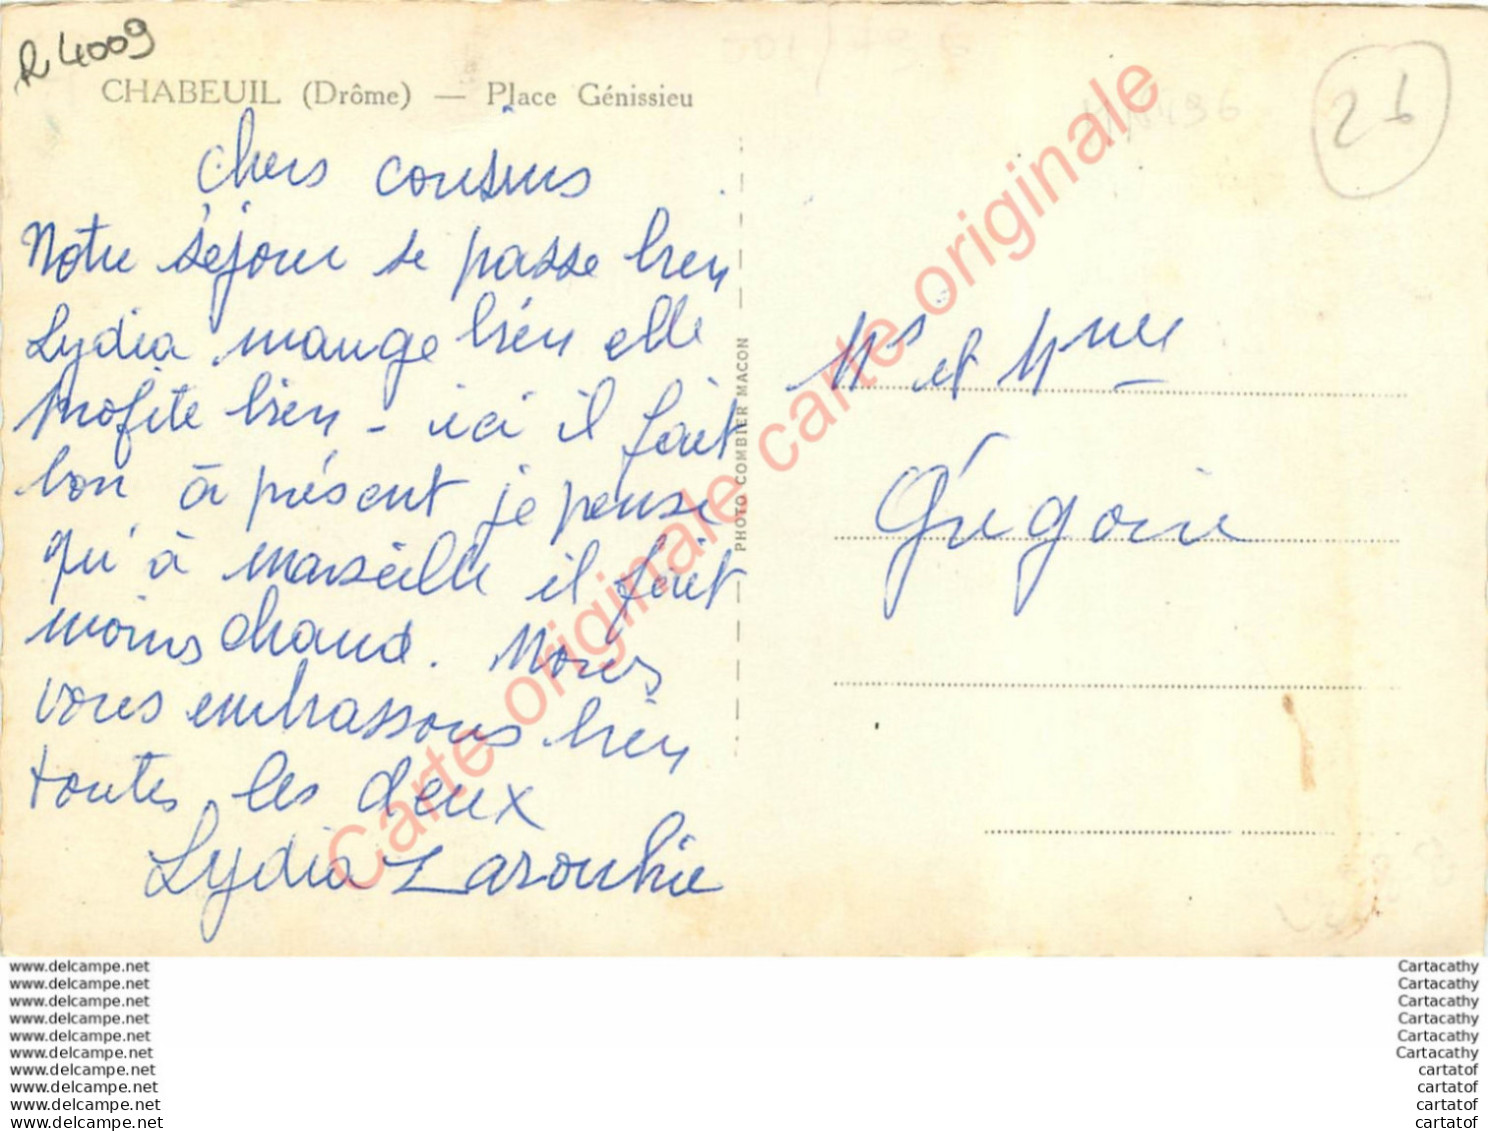 R 4009
CHABEUIL (Drôme) — Place Génissieu
26
chers cousins
Notre séjour se passe bien
Lydia mange bien elle
profite bien - ici il fait
bon à présent je pense
qu'à marseille il fait
moins chaud. Nous
vous embrassons bien
toutes les deux
Lydia
PHOTO COMBIER MACON
Mr et Mme
Grégoire
Carte originale carte originale carte originale
www.delcampe.net
www.delcampe.net
www.delcampe.net
www.delcampe.net
www.delcampe.net
www.delcampe.net
www.delcampe.net
www.delcampe.net
www.delcampe.net
www.delcampe.net
Cartacathy
Cartacathy
Cartacathy
Cartacathy
Cartacathy
Cartacathy
cartatof
cartatof
cartatof
cartatof